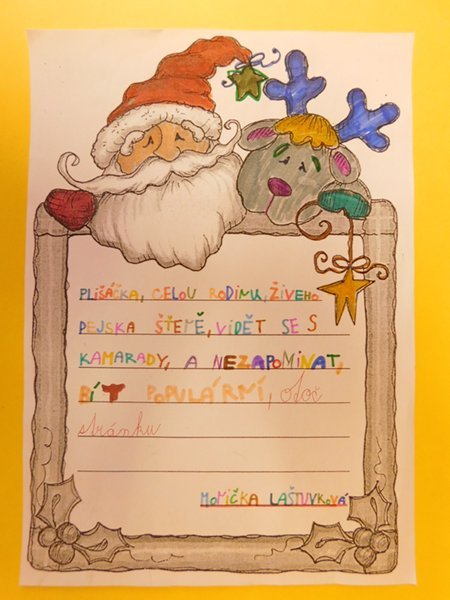 PLIŠÁČKA, CELOU RODINU, ŽIVEHO
PEJSKA ŠTEMĚ, VIDĚT SE S
KAMARADY, A NEZAPOMINAT,
BÍT POPULÁRMÍ, otoč
stránku
MOMIČKA LAŠTUVKOVÁ